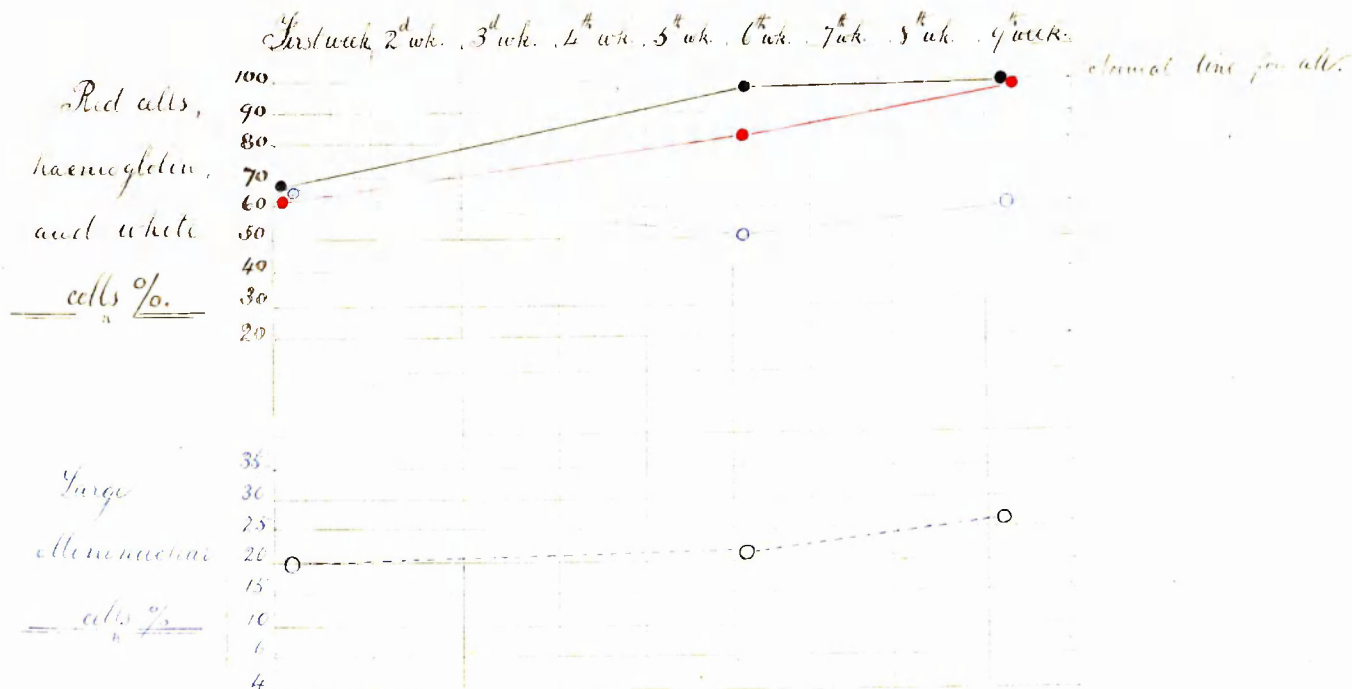 First week 2d wk. 3d wk. 4th wk. 5th wk. 6th wk. 7th wk. 8th wk. 9th week.
Normal line for all.
Red cells,
haemoglobin,
and white
cells %.
100
90
80
70
60
50
40
30
20
Large
Mononuclear
cells %
35
30
25
20
15
10
6
4